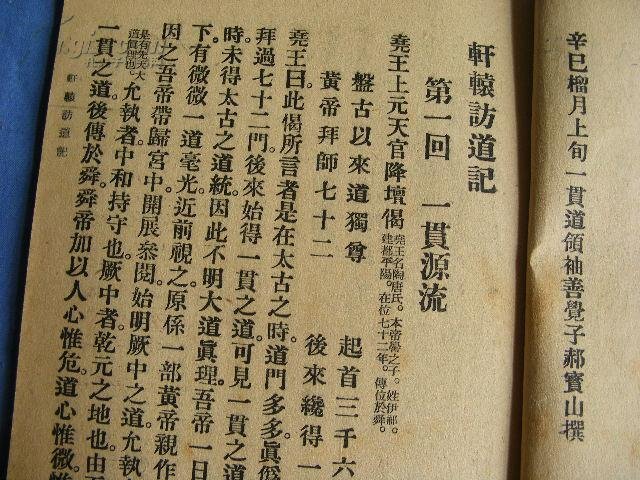 辛巳榴月上旬一貫道領袖善覺子郝寶山撰
軒轅訪道記
第一回 一貫源流
堯王上元天官降壇偈
堯王名陶唐氏。本帝嚳之子。姓伊祁。
建都平陽。在位七十二年。傳位於舜。
盤古以來道獨尊 起首三千六
黃帝拜師七十二 後來纔得一
堯王曰。此偈所言者。是在太古之時。道門多多。眞僞
拜過七十二門。後來始得一貫之道。可見一貫之道
時。未得太古之道統。因此不明大道眞理。吾帝一日
下有微微一道毫光。近前視之。原係一部黃帝親作
因之吾帝帶歸宮中。開展叅閱。始明厥中之道。允執
是有先天大
道眞理也。允執者。中和持守也。厥中者。乾元之地也。由
一貫之道。後傳於舜。舜帝加以人心惟危。道心惟微。惟
軒轅訪道記